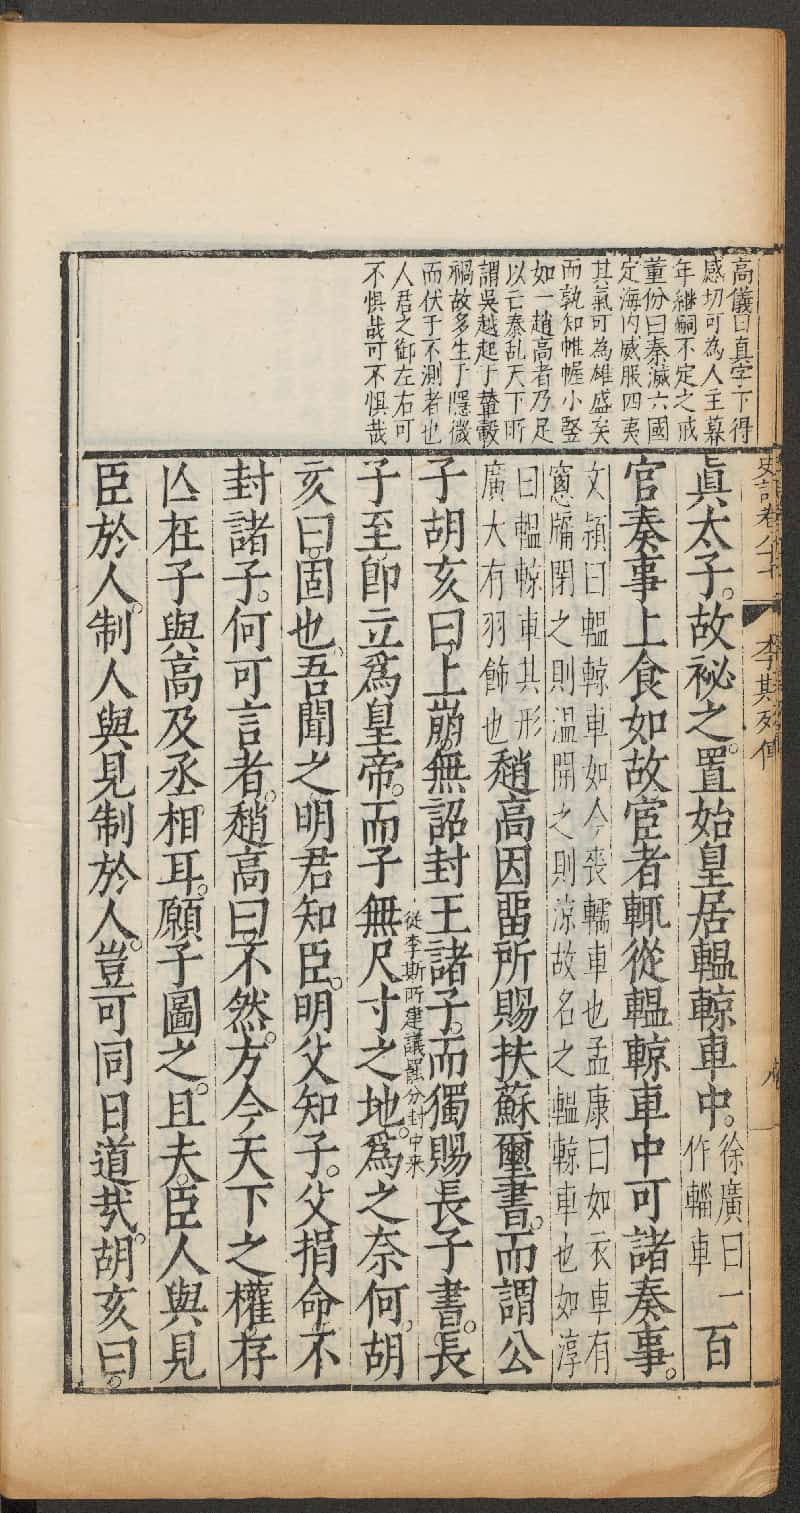 高儀曰真字下得
感切可為人主暮
年継嗣不定之戒
董份曰秦滅六國
定海内威服四夷
其氣可為雄盛矣
而孰知帷幄小豎
如一趙高者乃足
以亡秦乱天下所
謂吳越起于輦轂
禍故多生于隱微
而伏于不測者也
人君之御左右可
不惧哉可不惧哉
史記卷八十七
李斯列傳
真太子。故祕之。置始皇居轀輬車中。徐廣曰一作輜車百
官奏事上食如故宦者輒從轀輬車中可諸奏事。
文頴曰轀輬車如今喪轜車也孟康曰如衣車有
窻牖閉之則温開之則涼故名之轀輬車也如淳
曰轀輬車其形廣大有羽飾也趙高因畱所賜扶蘇璽書。而謂公
子胡亥曰上崩無詔封王諸子。而獨賜長子書。長
從李斯所建議罷分封中来
子至卽立爲皇帝。而子無尺寸之地。爲之奈何。胡
亥曰。固也。吾聞之明君知臣。明父知子。父捐命不
封諸子。何可言者。趙高曰。不然。方今天下之權存
亾在子與高及丞相耳。願子圖之。且夫臣人與見
臣於人。制人與見制於人。豈可同日道哉。胡亥曰。